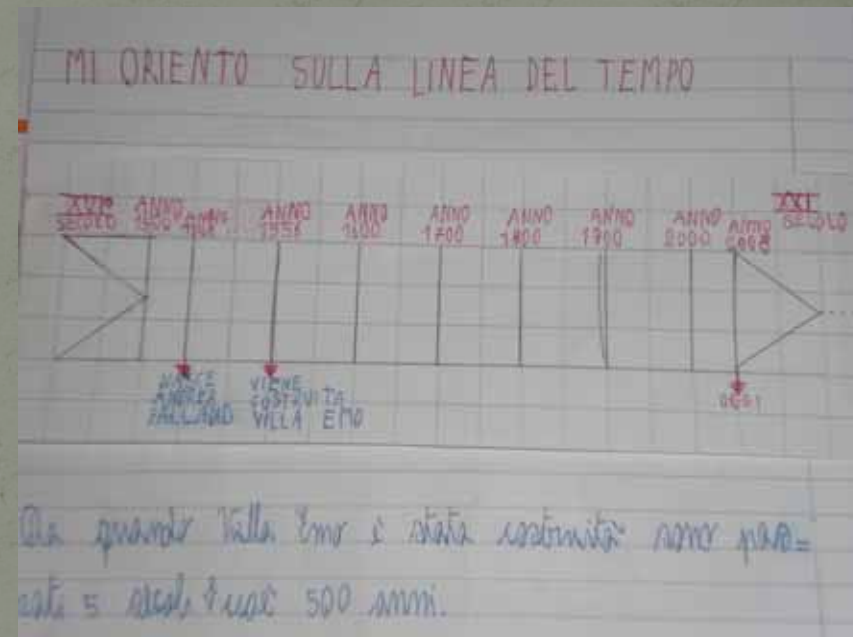 MI ORIENTO SULLA LINEA DEL TEMPO
SECOLO ANNO 1500 ANNO ANNO ANNO 1600 ANNO 1700 ANNO 1800 ANNO ANNO 2000 ANNO XXI SECOLO
NASCE ANDREA PALLADIO
VIENE COSTRUITA VILLA EMO
OGGI
Da quando Villa Emo è stata costruita sono pas=
sati 5 secoli 500 anni.